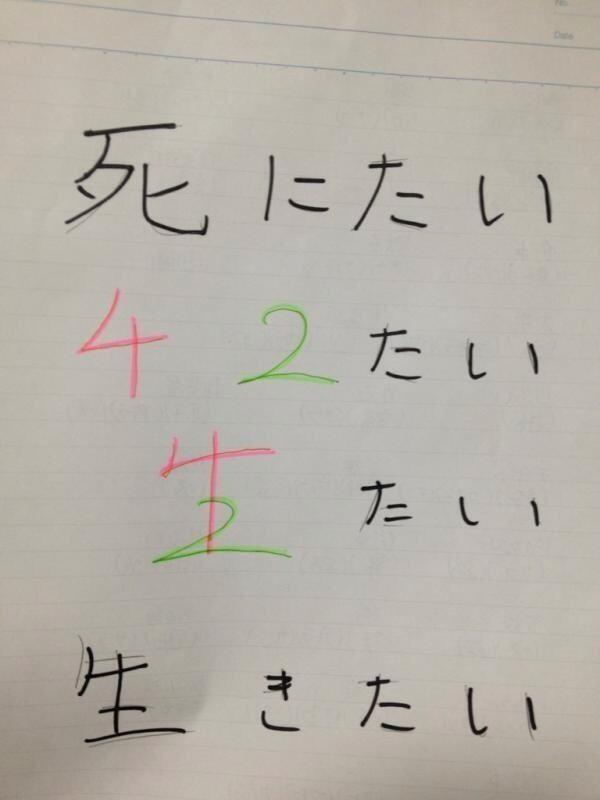 No.
Date
死にたい
42たい
生たい
生きたい